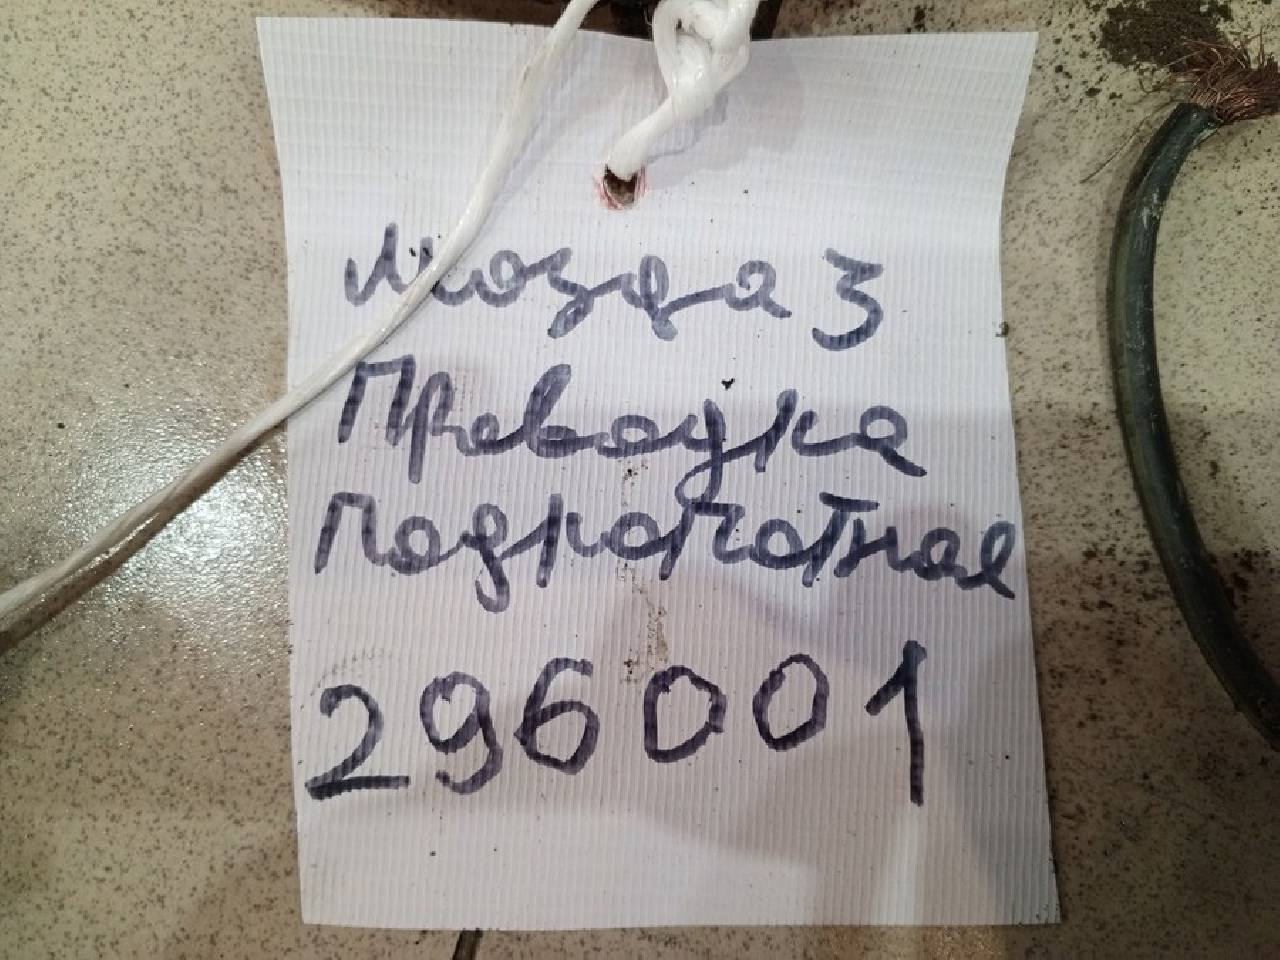 Мозда 3
Праводка
Подкопотная
296001